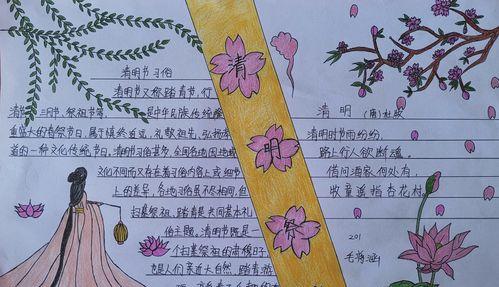 清明节习俗
清明节又称踏青节、行
清
三月节、祭祖节等,
是中华民族传统
重盛大的春祭节日,属于慎终追远、礼敬祖先、弘扬孝
道的一种文化传统节日。清明节习俗甚多,全国各地因地域
文化不同而又存在着习俗内容上或细节
上的差异,各地习俗虽不尽相同,但
扫墓祭祖、踏青是共同基本礼
俗主题。清明节既是一
个扫墓祭祖的肃穆日子
也是人们亲近大自然、踏青游
清
明
清明
(唐)杜牧
清明时节雨纷纷,
路上行人欲断魂。
借问酒家何处有
牧童遥指杏花村
201